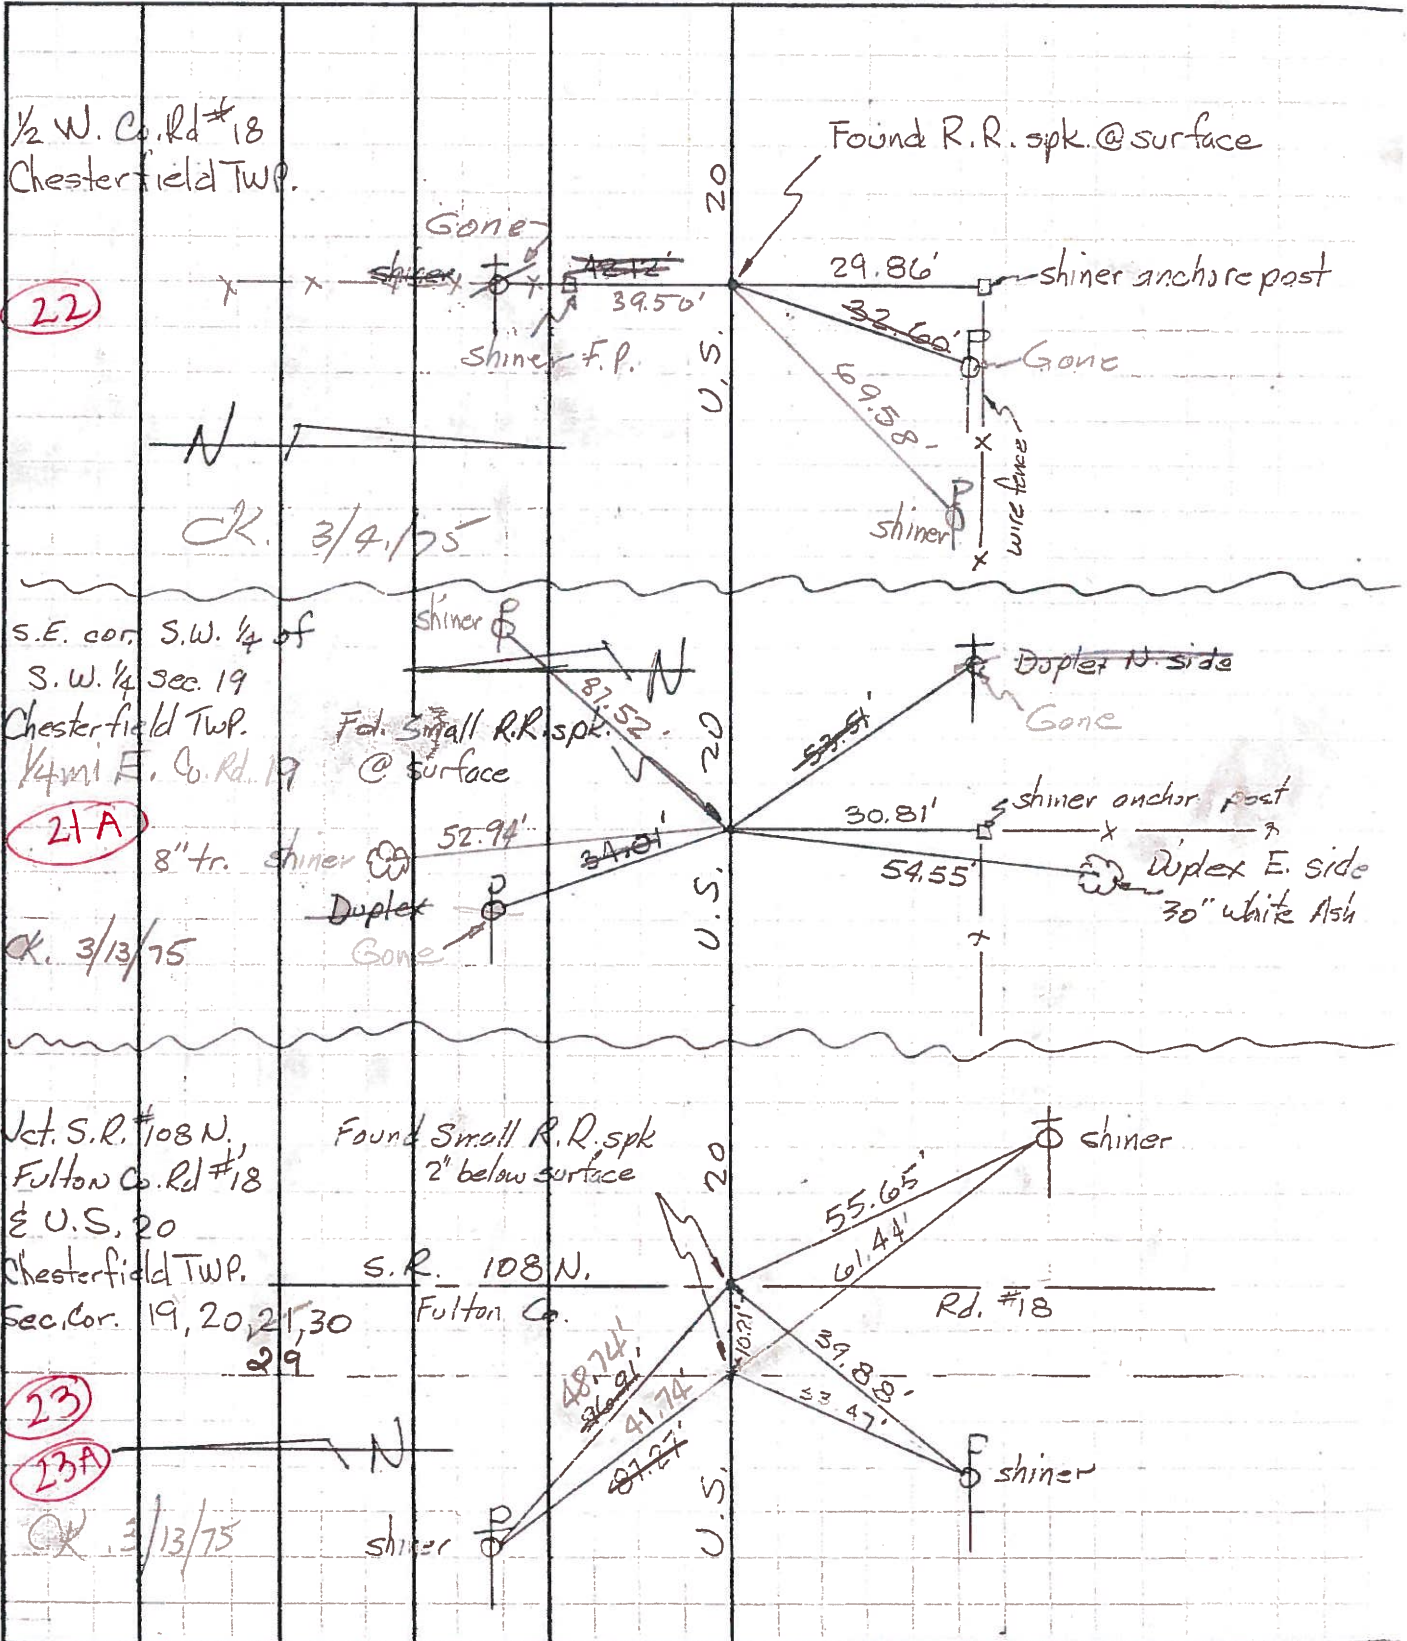 1/2 W. Co. Rd #18
Chesterfield TWP.
22
Found R.R. spk. @ surface
U.S. 20
Gone
shiner
42.12'
39.50'
shiner F.P.
29.86'
shiner anchore post
32.60'
Gone
69.58'
shiner
wire fence
N
CK. 3/4/75
S.E. cor. S.W. 1/4 of
S.W. 1/4 Sec. 19
Chesterfield TWP.
1/4 mi E. Co. Rd. 19
21A
CK. 3/13/75
shiner
N
87.52'
Fd. Small R.R. spk.
@ surface
U.S. 20
8" tr. shiner
52.94'
34.01'
Duplex
Gone
53.51'
Duplex N. side
Gone
30.81'
shiner anchor post
54.55'
Duplex E. side
30" White Ash
Jct. S.R. #108 N.,
Fulton Co. Rd #18
& U.S. 20
Chesterfield TWP.
Sec. Cor. 19, 20, 21, 30
29
23
23A
CK. 3/13/75
Found Small R.R. spk
2" below surface
U.S. 20
S.R. 108 N.
Fulton Co.
Rd. #18
55.65'
61.44'
shiner
10.21'
39.88'
53.47'
shiner
48.74'
41.74'
87.27'
shiner
N